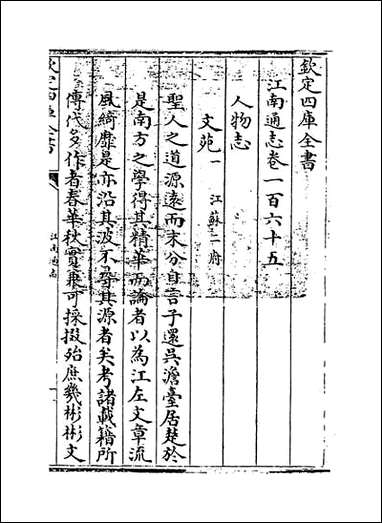 欽定四庫全書
江南通志卷一百六十五
人物志
文苑一 江蘇二府
聖人之道源遠而末分自言子還吳澹臺居楚於
是南方之學得其精華而論者以為江左文章流
風綺靡是亦沿其波不尋其源者矣考諸載籍所
傳代多作者春華秋實兼可採掇殆庶幾彬彬文
欽定四庫全書
江南通志